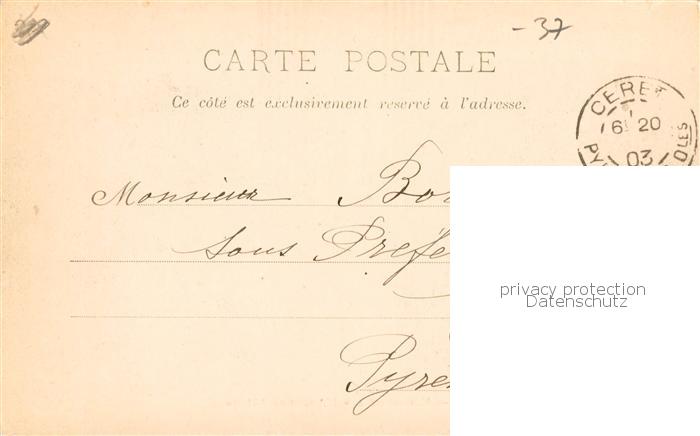 -37
CARTE POSTALE
Ce côté est exclusivement reservé à l'adresse.
CERET
6 20
03
Monsieur Bo
Sous Préfe
Pyré
privacy protection
Datenschutz